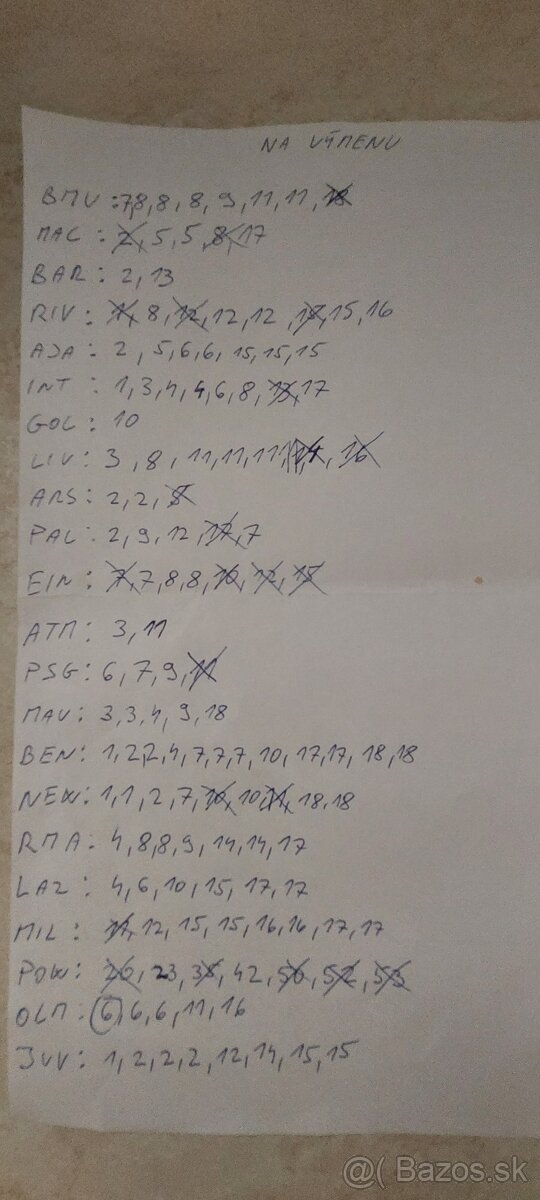 NA VÝMENU
BMU: 7,8,8,8,9,11,11,18
MAC: 2,5,5,8,17
BAR: 2,13
RIV: 1,8,12,12,12,15,16
AJA: 2,5,6,6,15,15,15
INT: 1,3,4,4,6,8,13,17
GOL: 10
LIV: 3,8,11,11,11,14,16
ARS: 2,2,8
PAL: 2,9,12,17,7
EIN: 7,7,8,8,10,12,15
ATM: 3,11
PSG: 6,7,9,11
MAU: 3,3,4,9,18
BEN: 1,2,2,4,7,7,7,10,17,17,18,18
NEW: 1,1,2,7,10,10,11,18,18
RMA: 4,8,8,9,14,14,17
LAZ: 4,6,10,15,17,17
MIL: 11,12,15,15,16,16,17,17
POW: 20,23,38,42,50,52,53
OLM: 6,6,6,11,16
JUV: 1,2,2,2,12,14,15,15
@( Bazos.sk